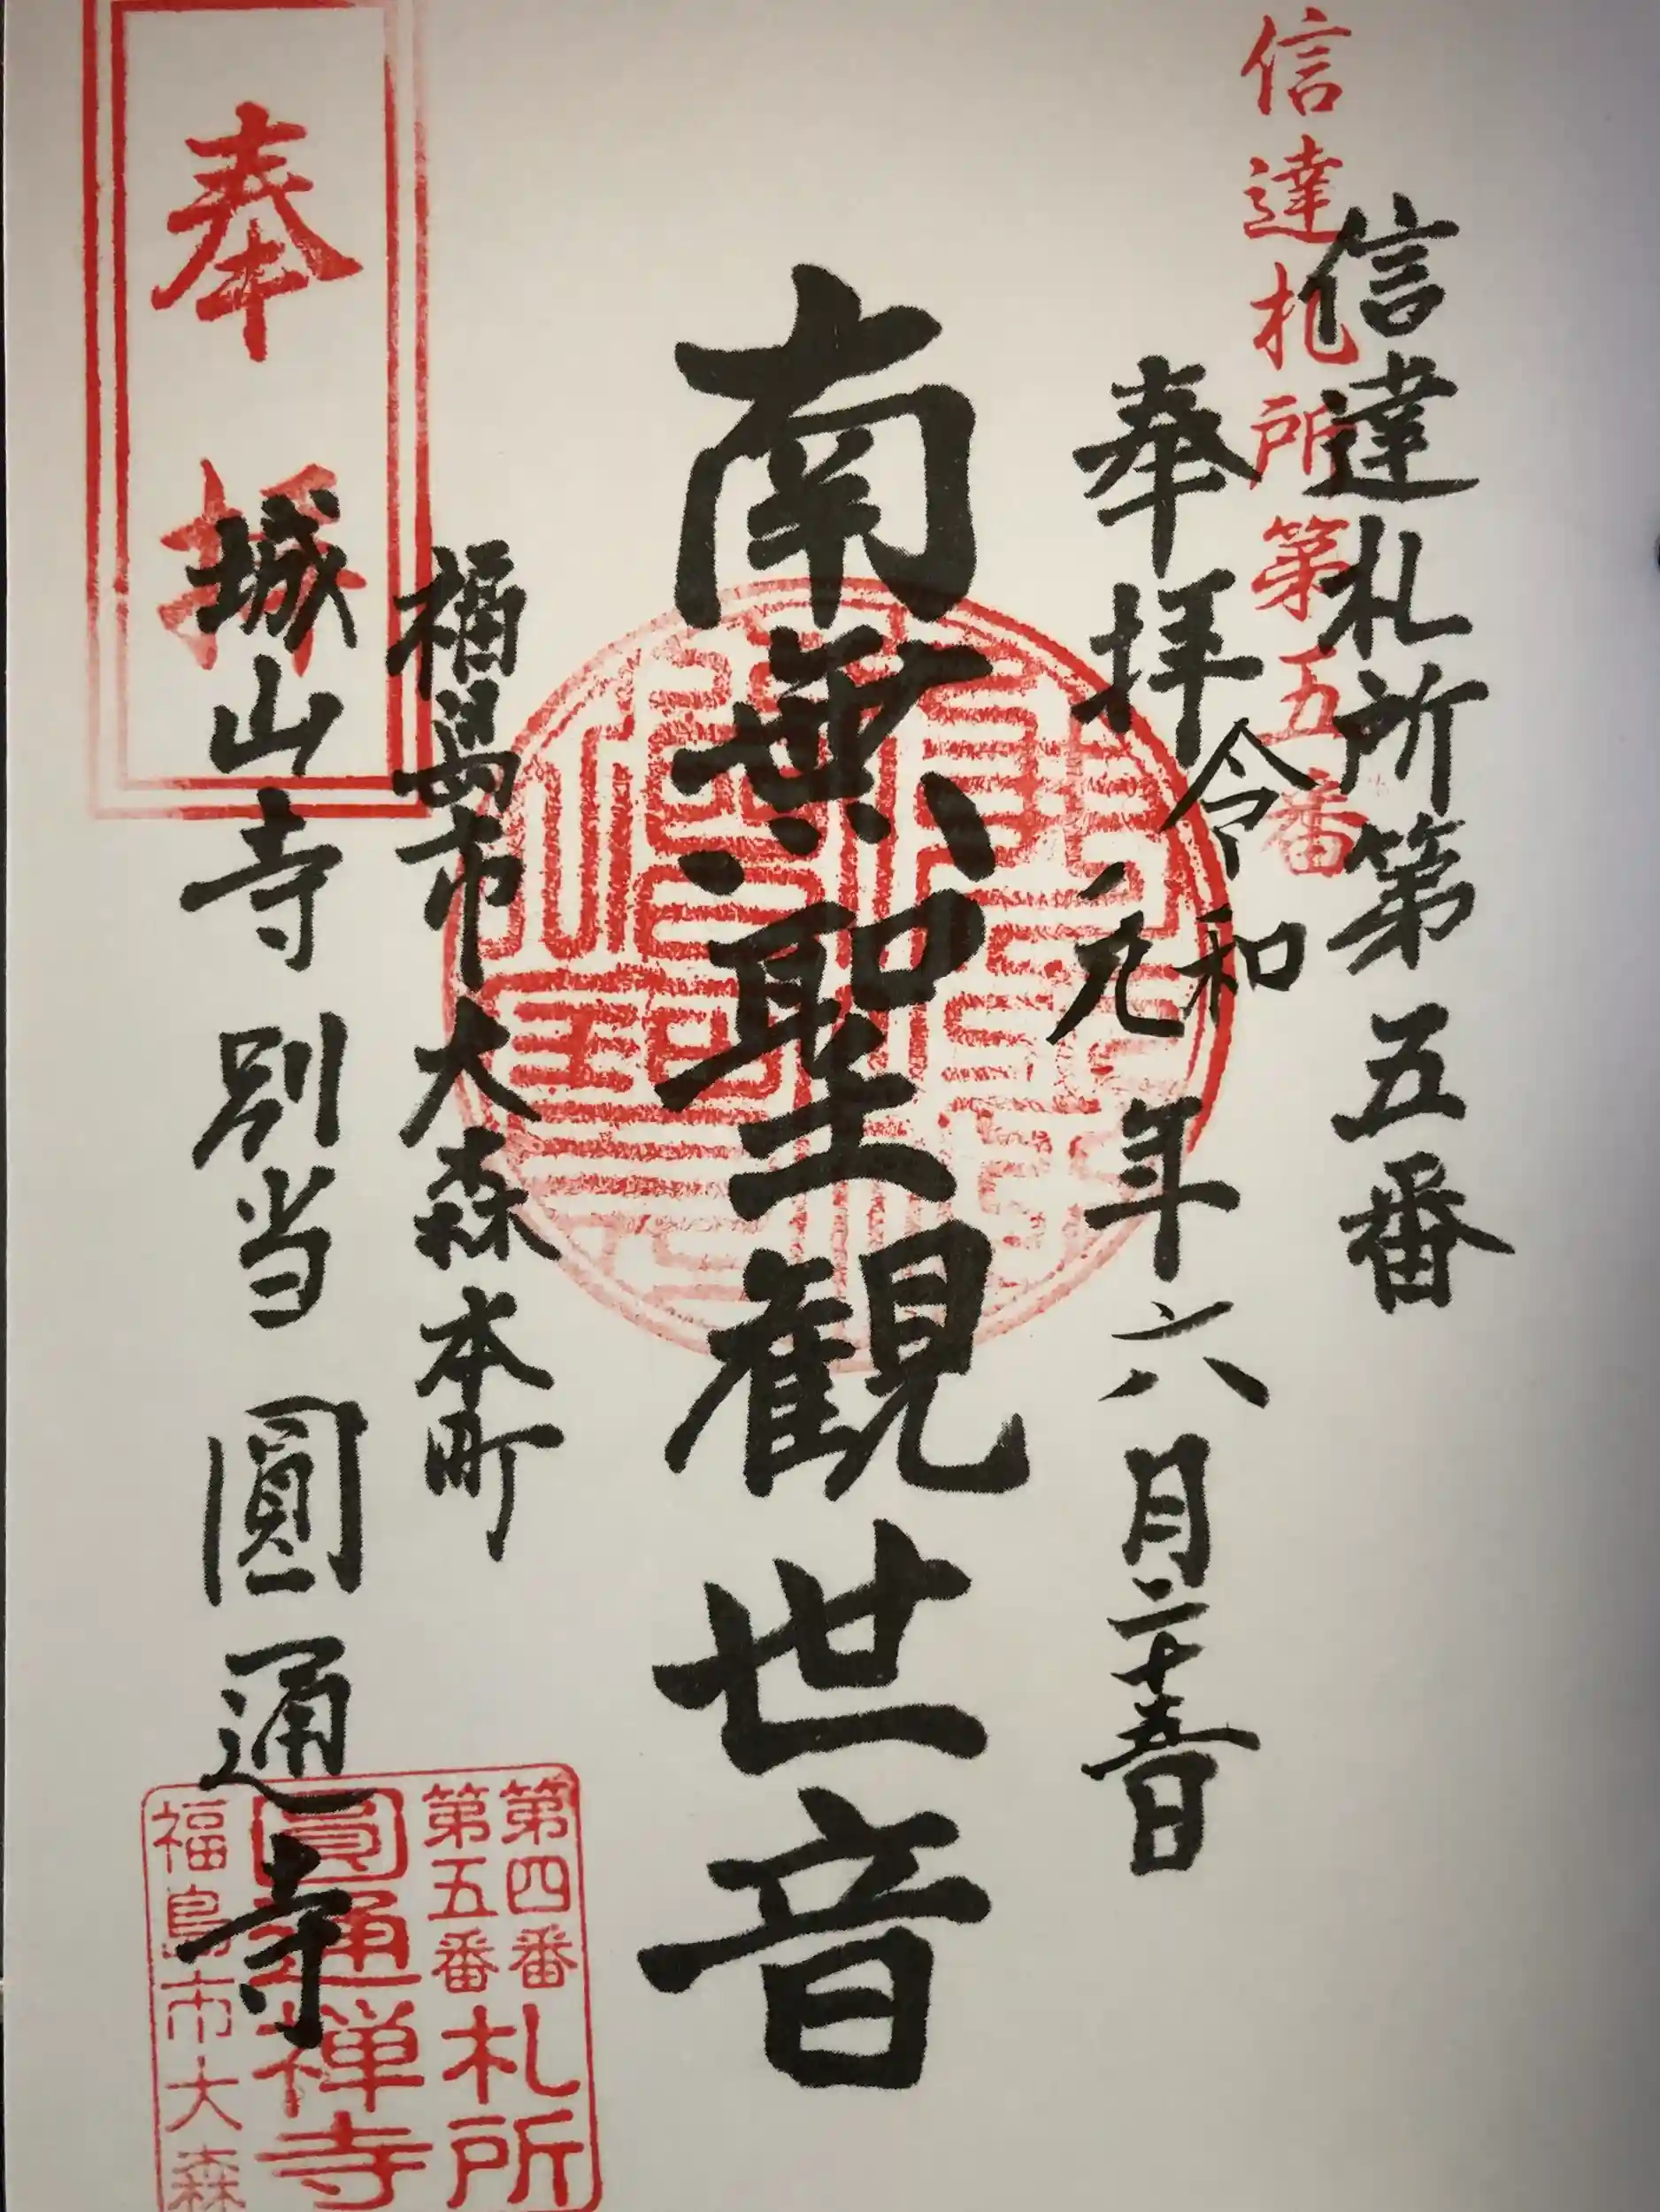 信達札所第五番
信達札所第五番
奉拝
令和元年六月二十五日
南無聖観世音
福島市大森本町
城山寺別当 圓通寺
奉拝
第四番
第五番
札所
圓通禅寺
福島市大森